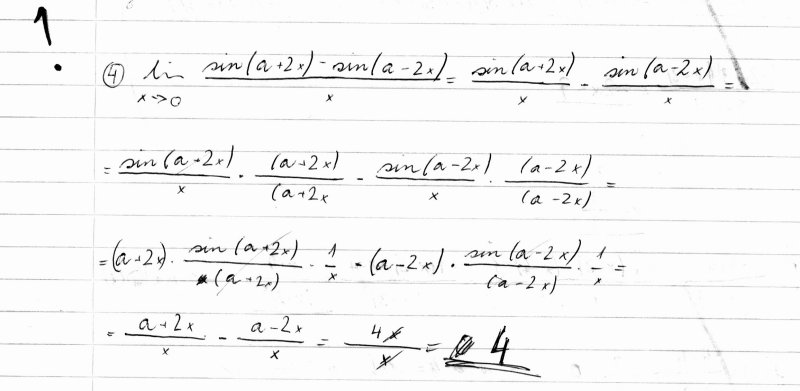 !
④ lim x→0 (sin(a+2x) - sin(a-2x))/x = sin(a+2x)/x - sin(a-2x)/x =
= sin(a+2x)/x · (a+2x)/(a+2x - sin(a-2x)/x · (a-2x)/(a-2x) =
= (a+2x) · sin(a+2x)/(a+2x) · 1/x - (a-2x) · sin(a-2x)/(a-2x) · 1/x =
= a+2x/x - a-2x/x = 4x/x = 4